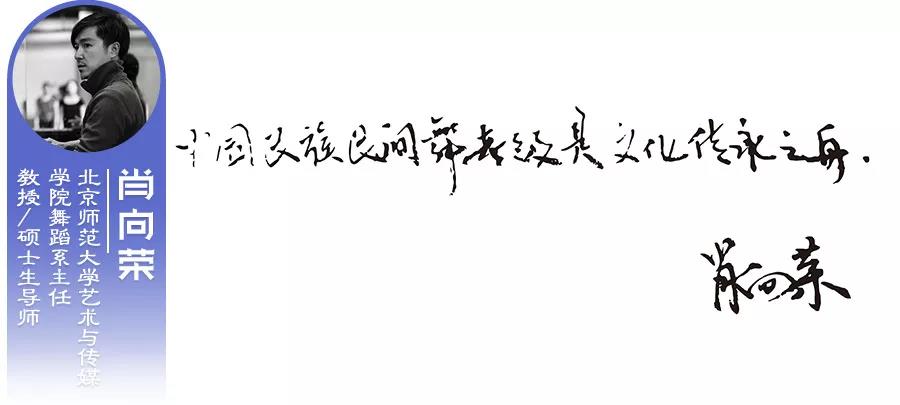 肖向荣
北京师范大学艺术与传媒
学院舞蹈系主任
教授/硕士生导师
中国民族民间舞考级是文化传承之舟.
肖向荣